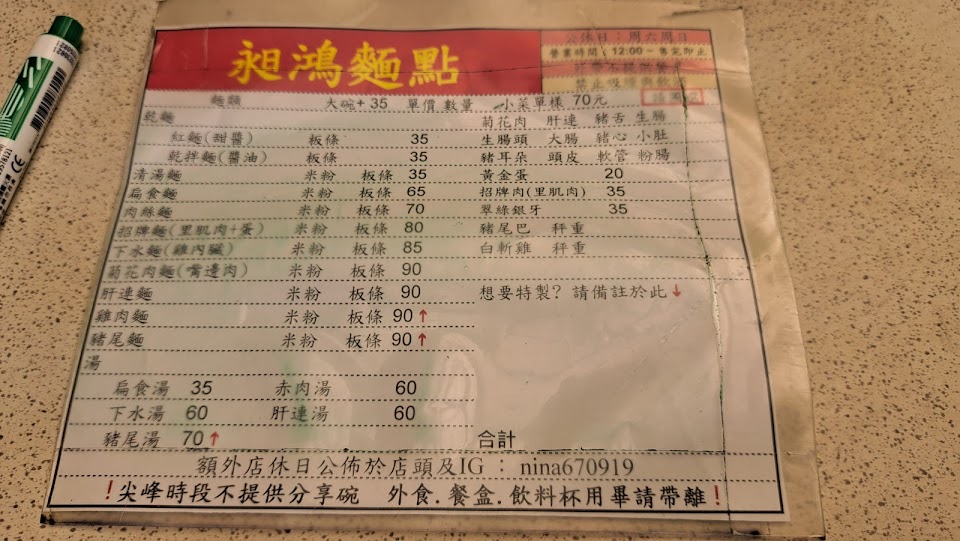 昶鴻麵點
公休日：周六周日
營業時間：12:00~售完即止
麵類 大碗+35 單價 數量 小菜單樣 70元
乾麵 菊花肉 肝連 豬舌 生腸
紅麵(甜醬) 板條 35 生腸頭 大腸 豬心 小肚
乾拌麵(醬油) 板條 35 豬耳朵 頭皮 軟管 粉腸
清湯麵 米粉 板條 35 黃金蛋 20
扁食麵 米粉 板條 65 招牌肉(里肌肉) 35
肉絲麵 米粉 板條 70 翠綠銀牙 35
招牌麵(里肌肉+蛋) 米粉 板條 80 豬尾巴 秤重
下水麵(雞內臟) 米粉 板條 85 白斬雞 秤重
菊花肉麵(嘴邊肉) 米粉 板條 90
肝連麵 米粉 板條 90 想要特製? 請備註於此↓
雞肉麵 米粉 板條 90↑
豬尾麵 米粉 板條 90↑
湯
扁食湯 35 赤肉湯 60
下水湯 60 肝連湯 60
豬尾湯 70↑ 合計
額外店休日公佈於店頭及IG：nina670919
!尖峰時段不提供分享碗 外食.餐盒.飲料杯用畢請帶離!